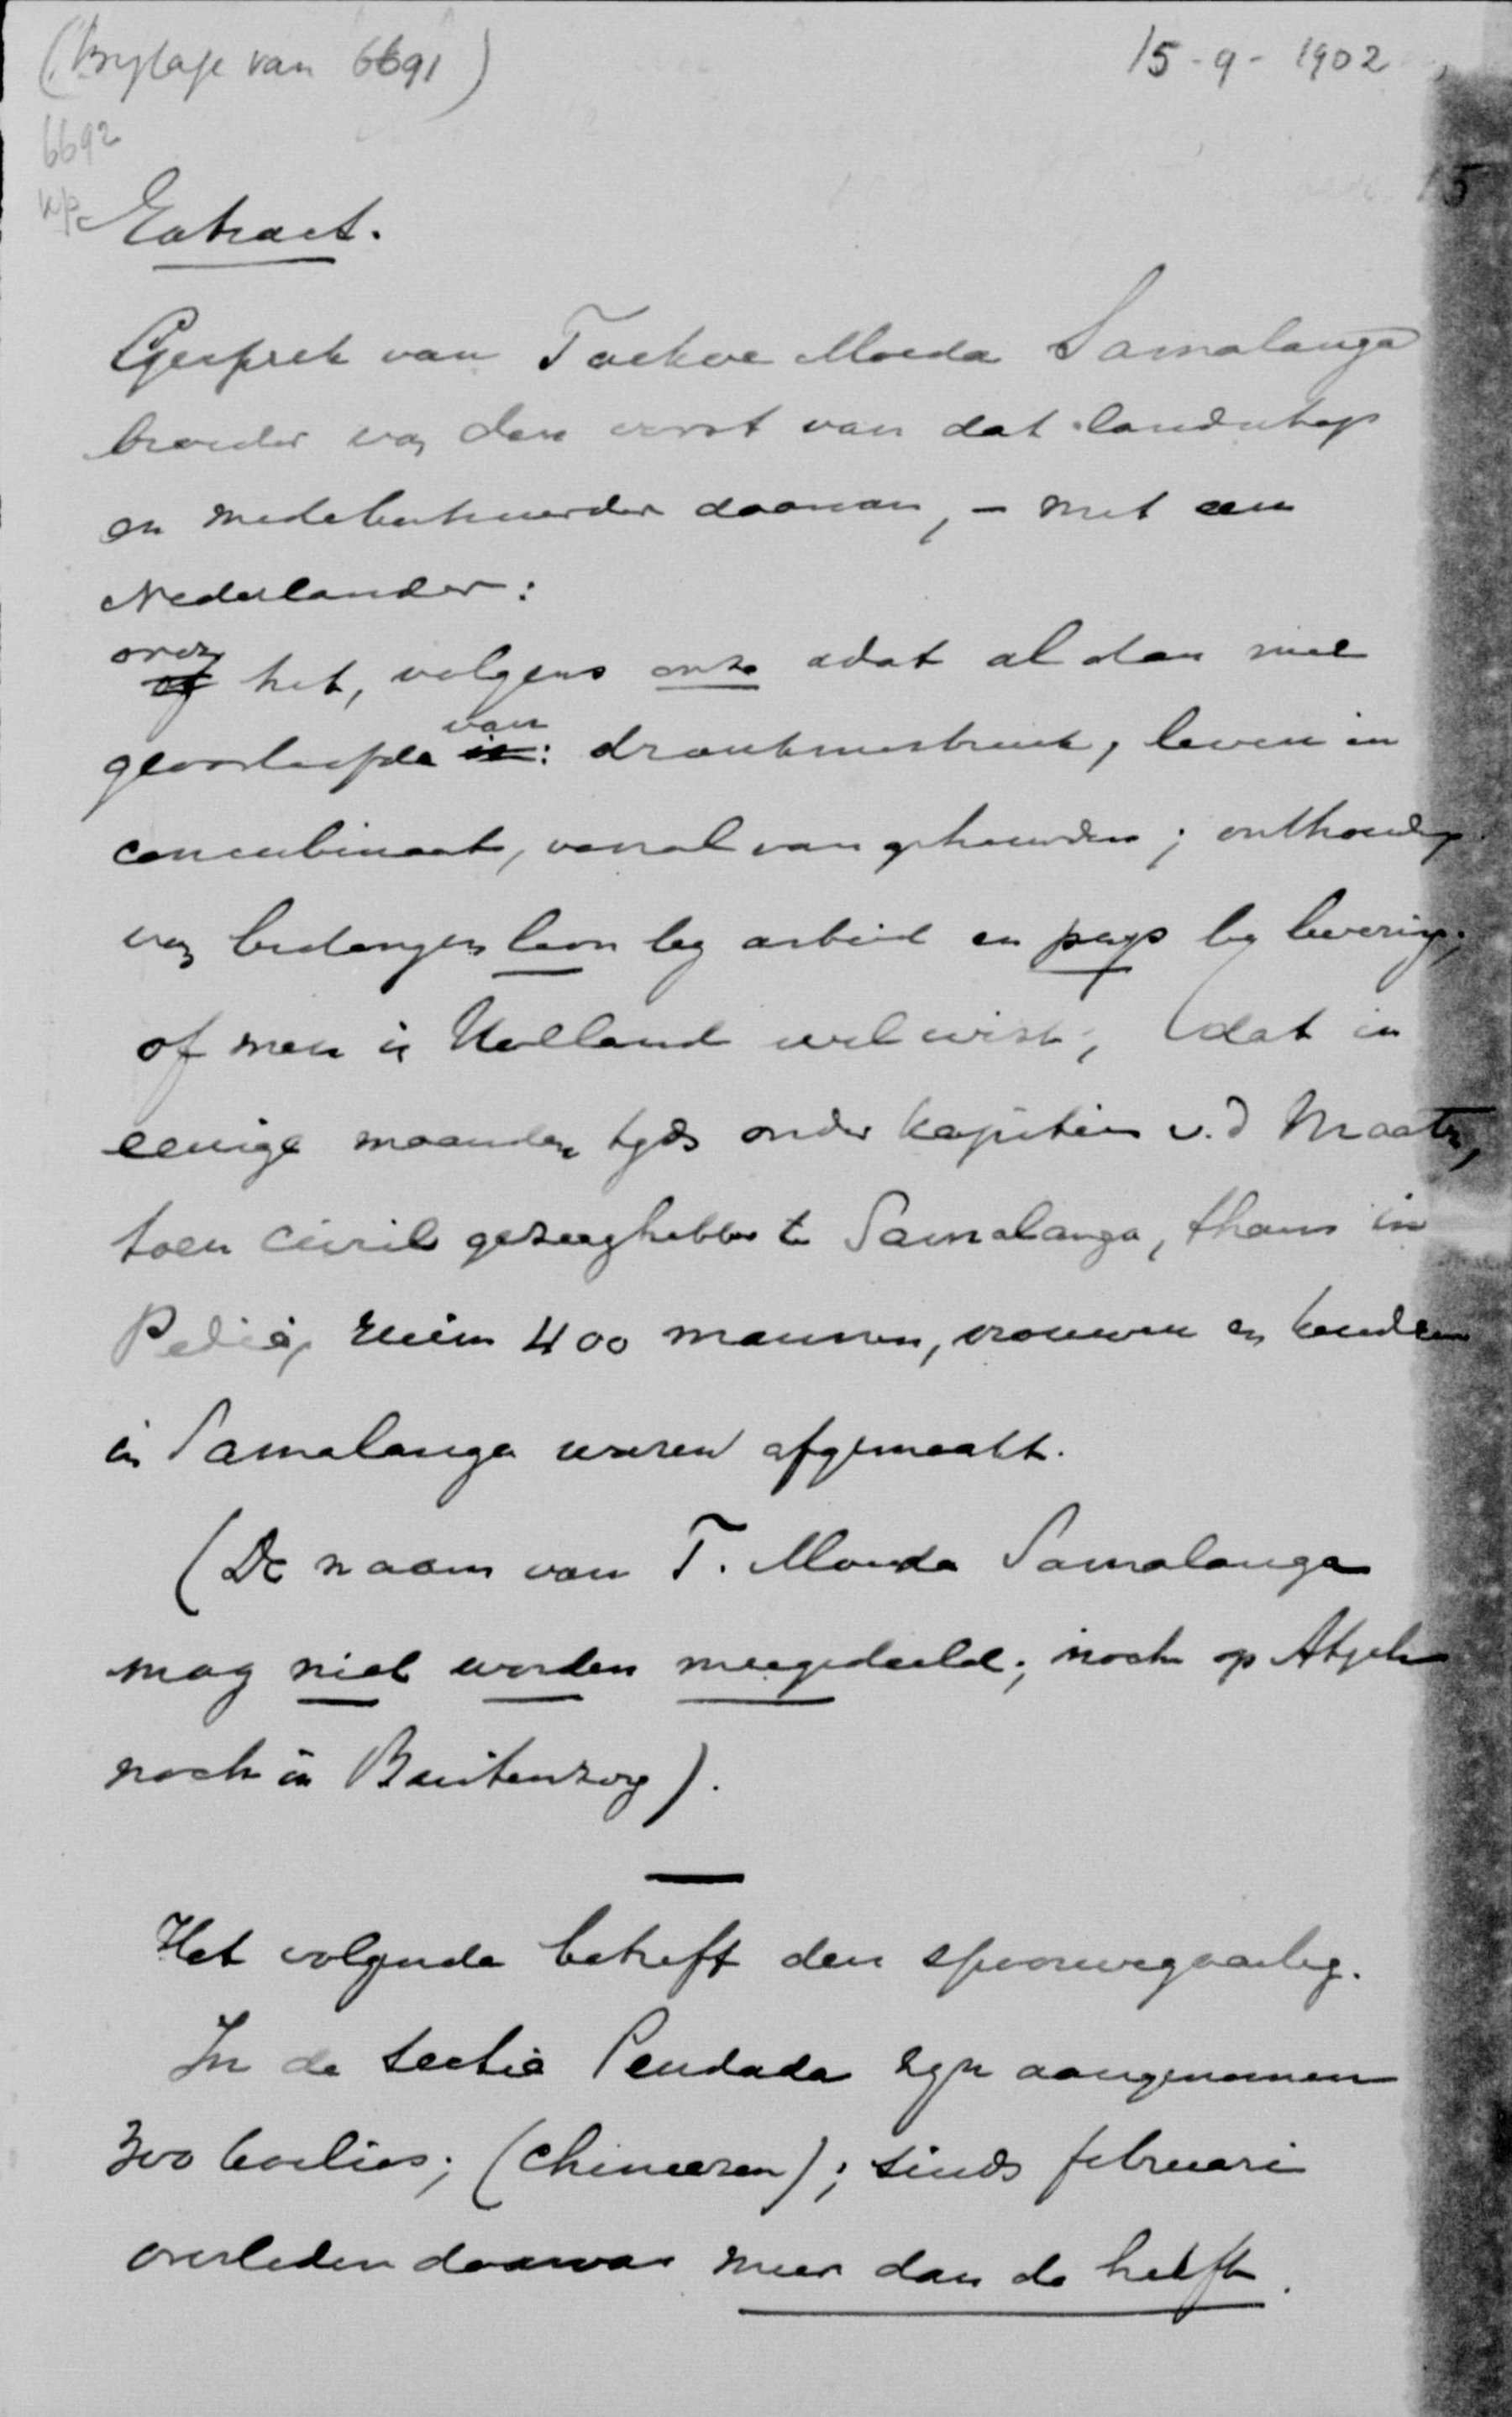 (Bijlage van 6691)
15-9-1902
6692
Extract.
Gesprek van Toekoe Moeda Samalanga
broeder van den vorst van dat landschap
en medebestuurder daarvan, – met een
Nederlander:
over
of het, volgens onze adat al dan niet
van
geoorloofde in: drankmisbruik, leven in
concubinaat, vooral van gehuwden; onthouding
van bedongen loon bij arbeid en prijs bij levering;
of men in Holland wel wist, dat in
eenige maanden tijds onder kapitein v.d Maaten,
toen civiel gezaghebber te Samalanga, thans in
Pedië, ruim 400 mannen, vrouwen en kinderen
in Samalanga waren afgemaakt.
(De naam van T. Moeda Samalanga
mag niet worden meegedeeld; noch op Atjeh
noch in Buitenzorg).
Het volgende betreft den spoorwegaanleg.
In de sectie Peudada zijn aangenomen
300 koelies; (Chineezen); sinds februari
overleden daarvan meer dan de helft.